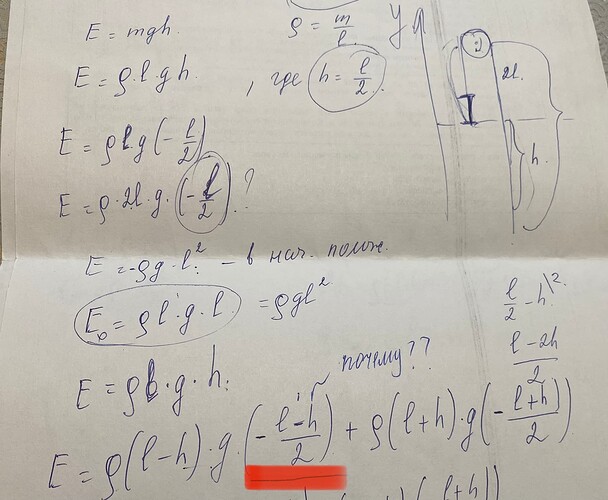 E = mgh.
ρ = m/l.
E = ρ·l·gh. , где h = l/2.
E = ρlg(-l/2)
E = ρ·2l·g·(-l/2).?
E = -ρg·l². – в нач. полож.
E₀ = ρl·g·l = ρgl²
l/2 - h\².
(l-2h)/2
E = ρl·g·h.
почему??
E = ρ(l-h)·g·(-(l-h)/2) + ρ(l+h)·g(-(l+h)/2)
(l+h))
y
2l.
h.